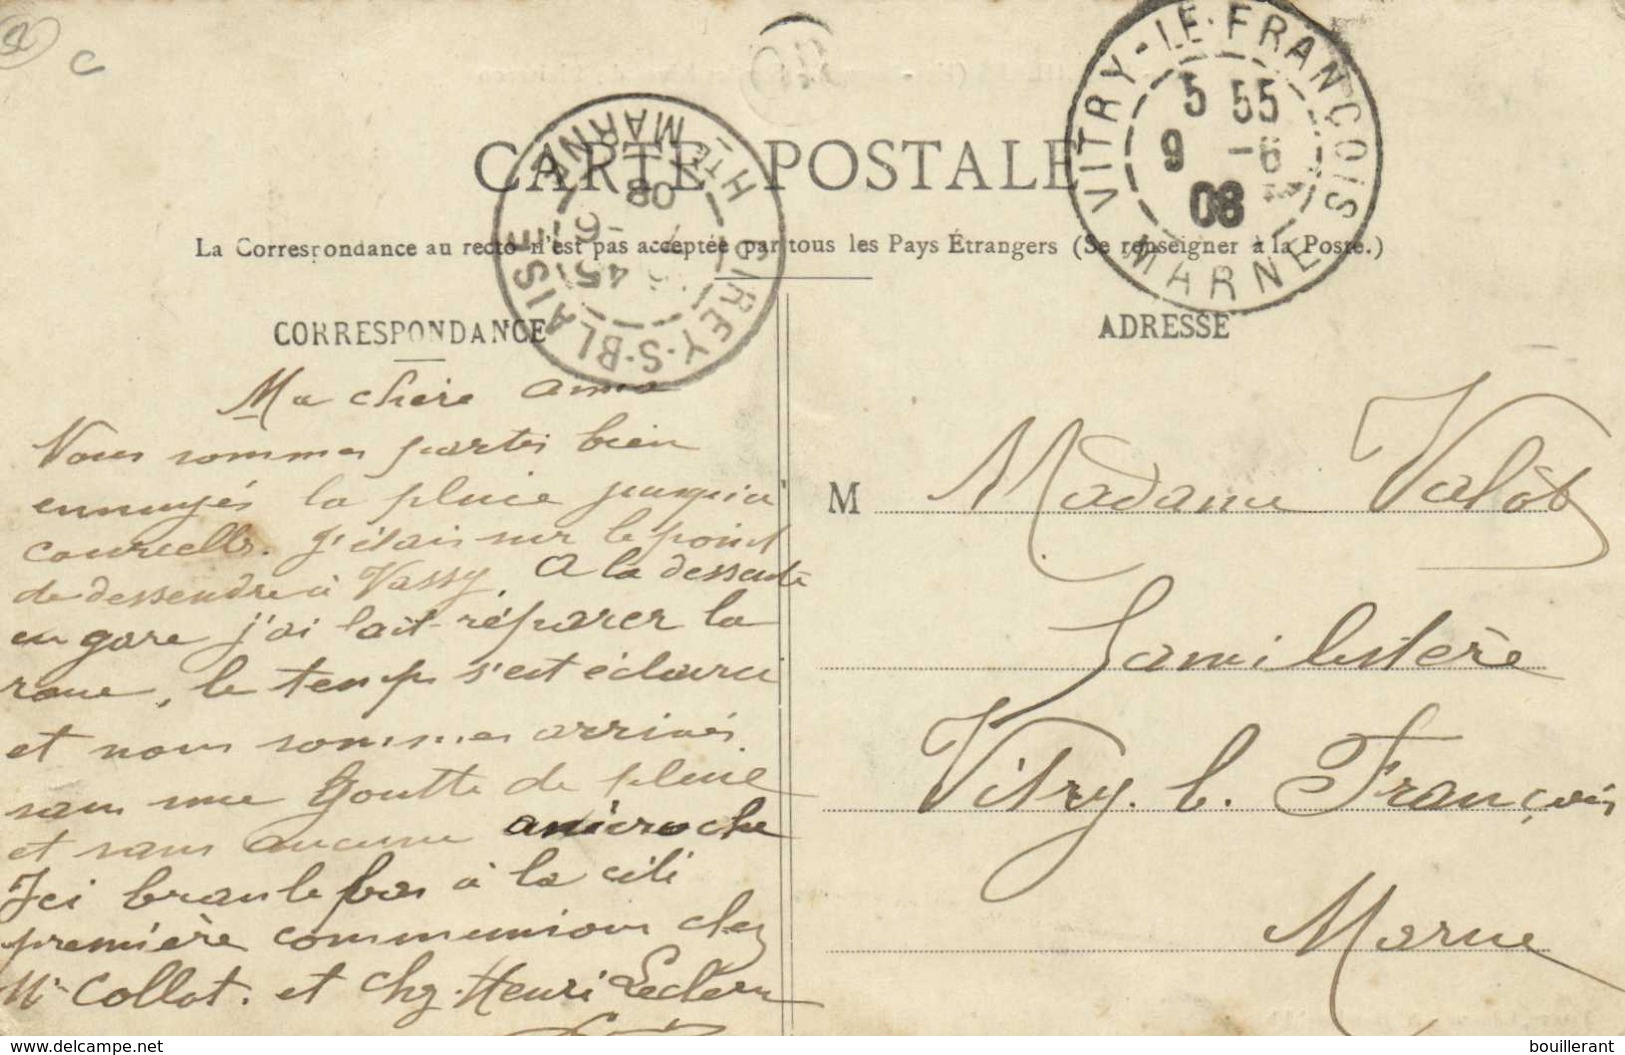 CARTE POSTALE
La Correspondance au recto n'est pas acceptée par tous les Pays Étrangers (Se renseigner à la Poste.)
HTE MARNE
CIREY-S-BLAISE
08
45
VITRY-LE-FRANÇOIS
5 55
9 -6
08
MARNE
CORRESPONDANCE
Ma chère amie
Nous sommes partis bien
ennuyés la pluie jusqu'à
Courcelles. J'étais sur le point
de dessendre à Vassy. A la dessente
en gare j'ai fait réparer la
roue, le temps s'est éclairci
et nous sommes arrivés
sans une goutte de pluie
et sans aucune anicroche
Ici branle bas à la cité
première communion chez
Mr Collot. et chz. Henri Leclerc
ADRESSE
M Madame Valôt
Lamiletière
Vitry. l. François
Marne
www.delcampe.net
bouillerant